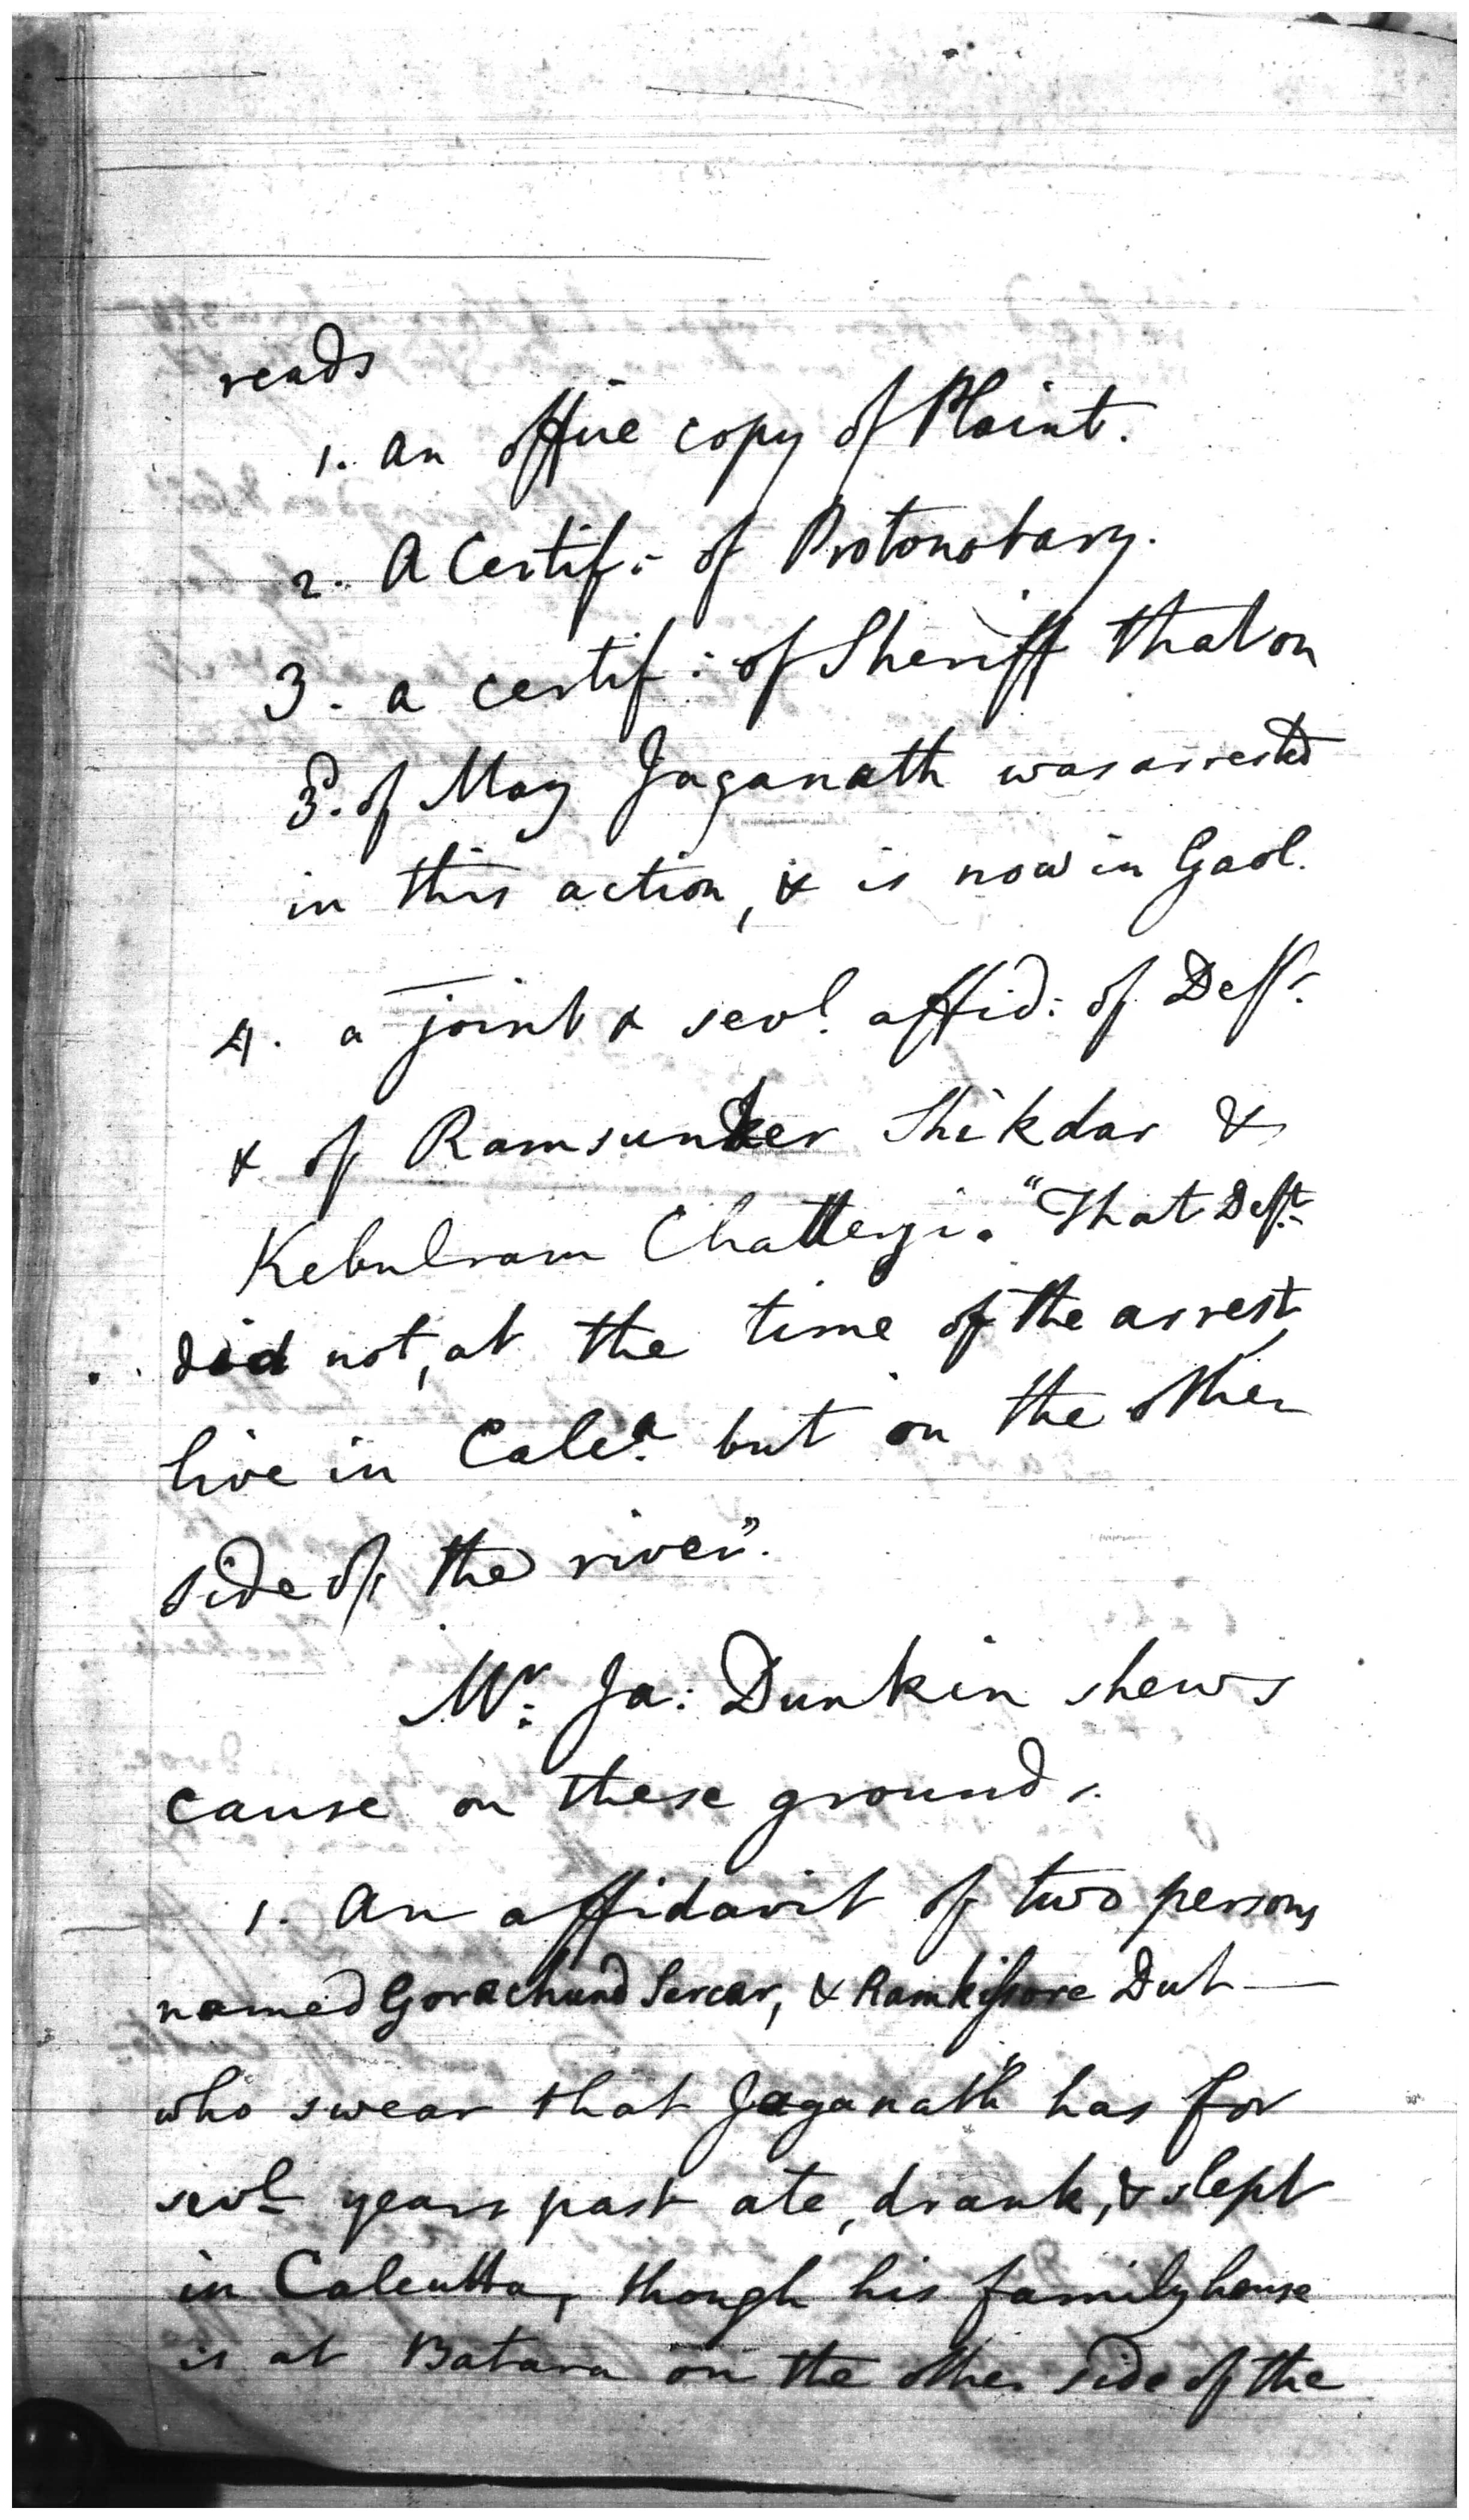 reads
1. an office copy of Plaint.
2. A Certif: of Protonotary.
3. a certif: of Sheriff that on
3d. of May Jaganath was arrested
in this action, & is now in Gaol.
4. a joint & sevl. affid: of Deft.
& of Ramsunker Shikdar &
Kebulram Chatterji. "That Deft.
did not, at the time of the arrest
live in Calca. but on the other
side of the river".
Mr. Ja: Dunkin shews
cause on these grounds.
1. An affidavit of two persons
named Gorachund Sercar, & Ramkissore Dut —
who swear that Jaganath has for
sevl. years past ate, drank, & slept
in Calcutta, though his family house
is at Batara on the other side of the